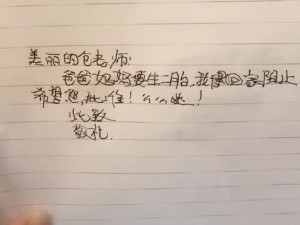 美丽的仓老师:
爸爸妈妈要生二胎,我得回家阻止
希望您批准!么么哒!
此致
敬礼